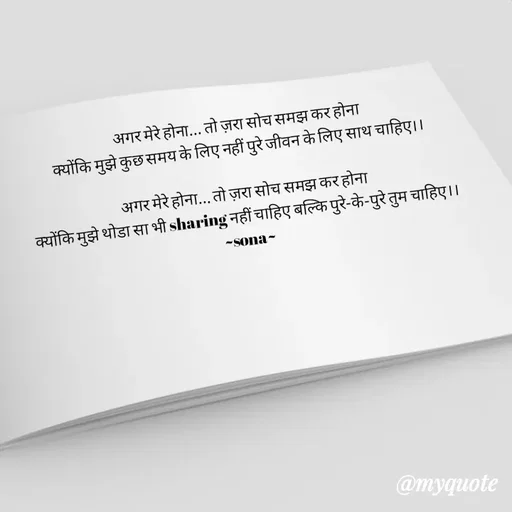 अगर मेरे होना... तो ज़रा सोच समझ कर होना
क्योंकि मुझे कुछ समय के लिए नहीं पुरे जीवन के लिए साथ चाहिए।।
अगर मेरे होना... तो ज़रा सोच समझ कर होना
क्योंकि मुझे थोडा सा भी sharing नहीं चाहिए बल्कि पुरे-के-पुरे तुम चाहिए।।
~sona~
@myquote